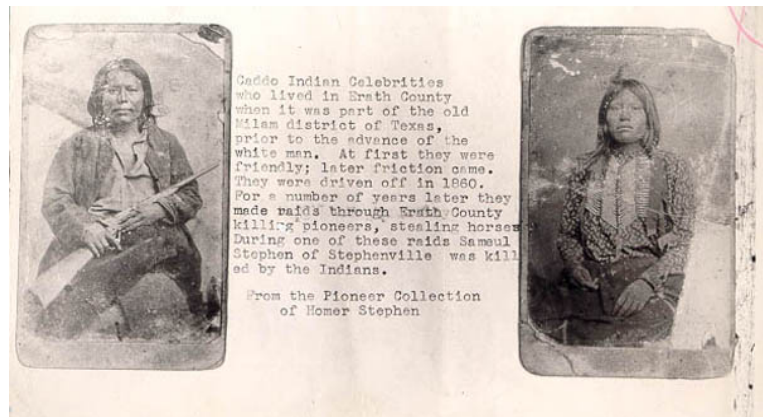 Caddo Indian Celebrities
who lived in Erath County
when it was part of the old
Milam district of Texas,
prior to the advance of the
white man.  At first they were
friendly; later friction came.
They were driven off in 1860.
For a number of years later they
made raids through Erath County
killing pioneers, stealing horses
During one of these raids Sameul
Stephen of Stephenville  was kill
ed by the Indians.
From the Pioneer Collection
of Homer Stephen